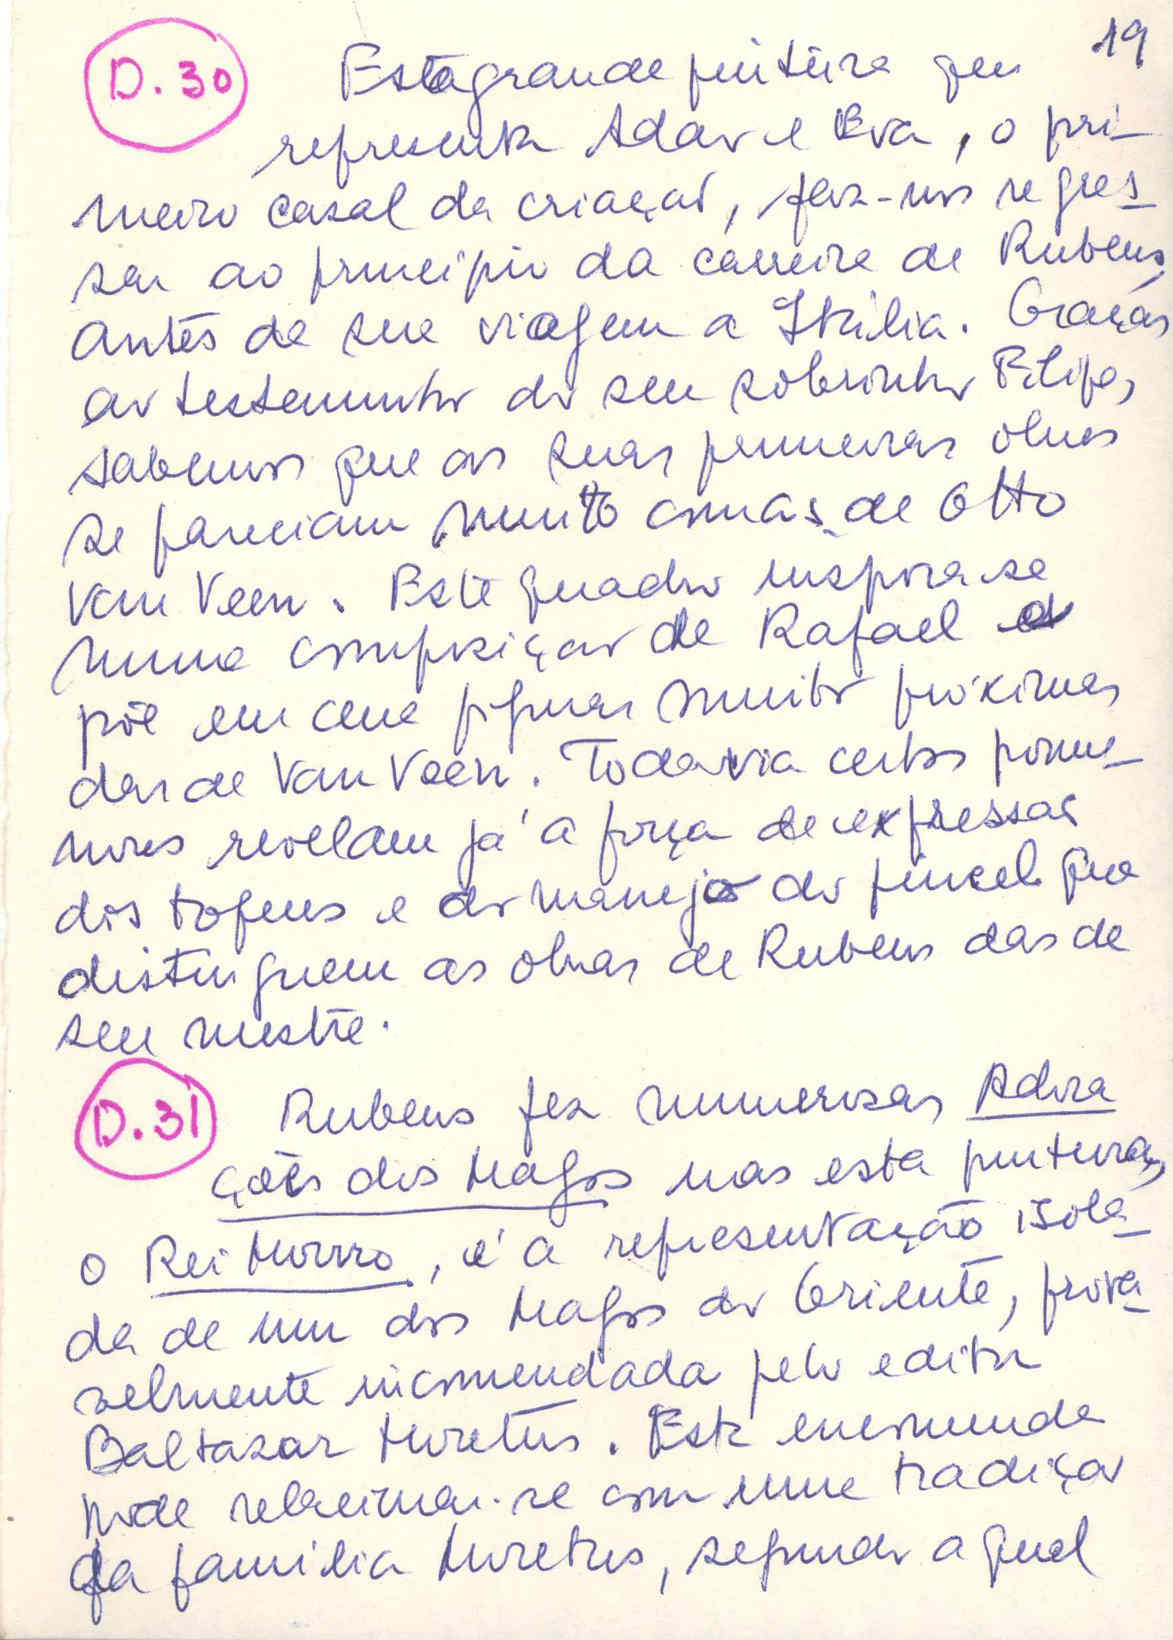 19
D.30 Esta grande pintura que
representa Adão e Eva, o pri-
meiro casal da criação, faz-nos regres-
sar ao princípio da carreira de Rubens,
antes de sua viagem a Itália. Graças
ao testemunho do seu sobrinho Filipe,
sabemos que as suas primeiras obras
se pareciam muito com as de Otto
Van Veen. Este quadro inspira-se
numa composição de Rafael e
põe em cena figuras muito próximas
das de Van Veen. Todavia certos porme-
nores revelam já a força de expressão
dos togens e do manejo do pincel que
distinguem as obras de Rubens das de
seu mestre.
D.31 Rubens fez numerosas Adora
ções dos Magos mas esta pintura,
o Rei Mouro, é a representação isola-
da de um dos Magos do Oriente, prova-
velmente incomendada pelo editor
Baltazar Moretus. Esta encomenda
pode relacionar-se com uma tradição
da família Moretus, segundo a qual